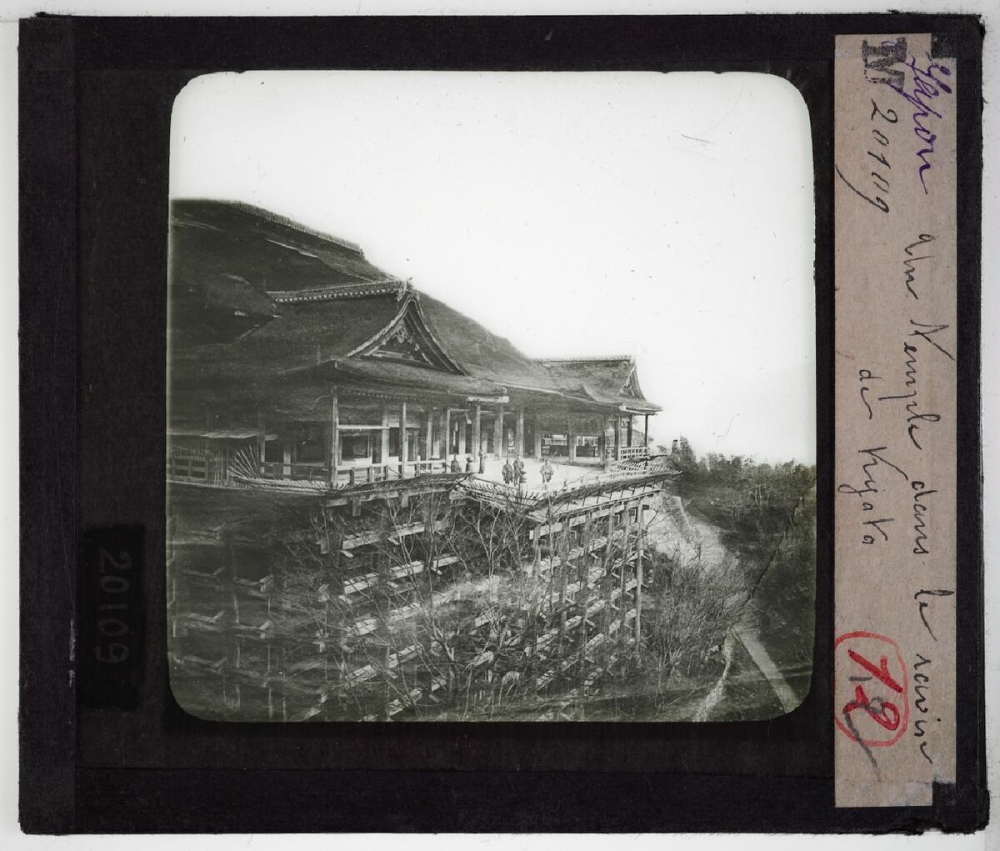 Japon Un Temple dans le ravin
N 20109
de Kyoto
12
20109